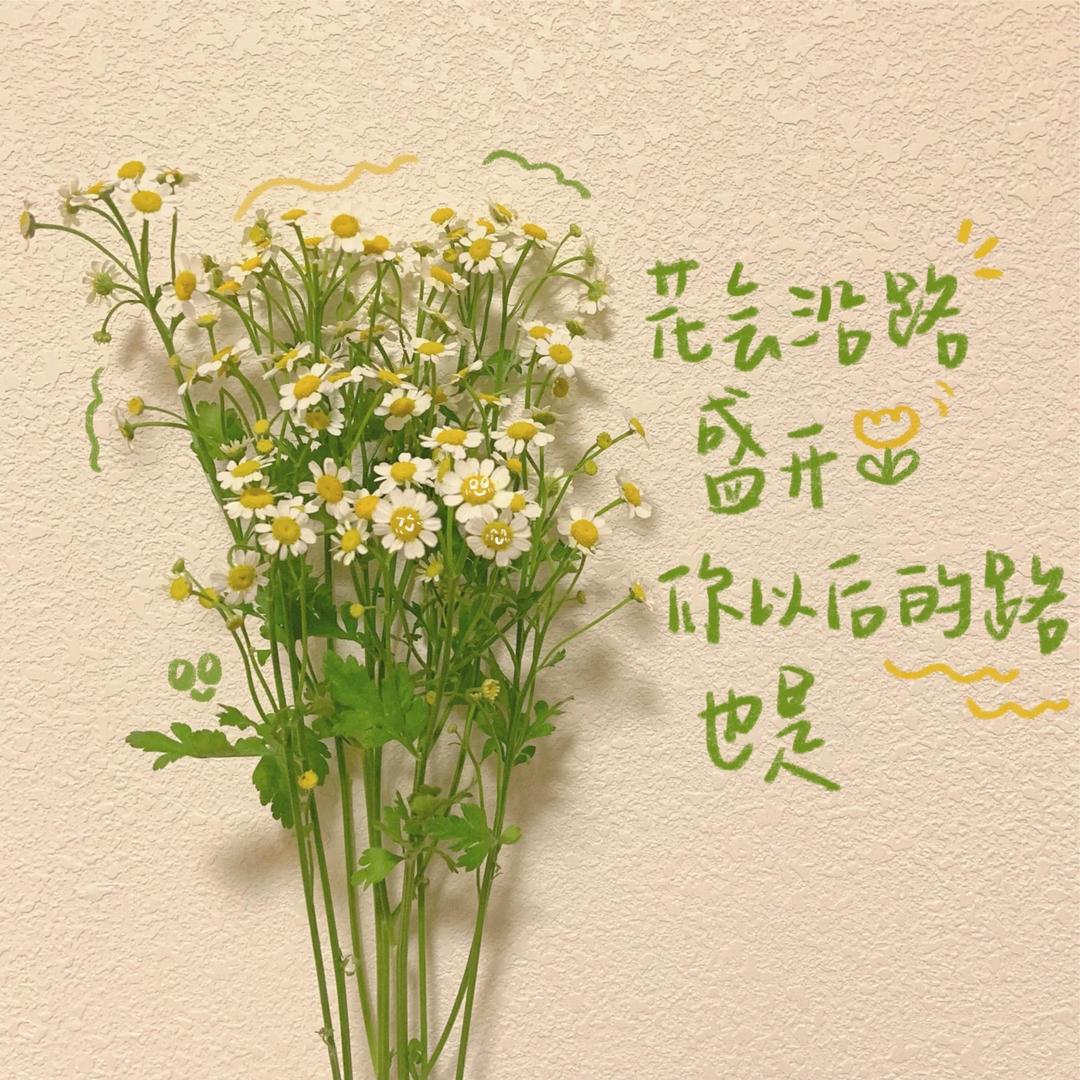 花会沿路
盛开
你以后的路
也是